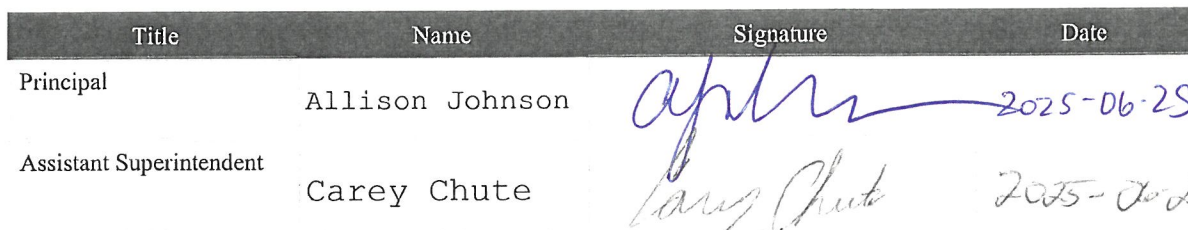 Title Name Signature Date
Principal Allison Johnson 2025-06-25
Assistant Superintendent Carey Chute Carey Chute